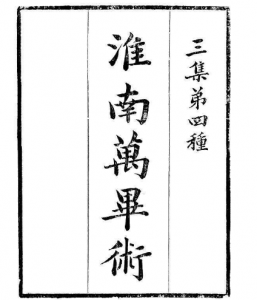 三集第四種
淮南萬畢術